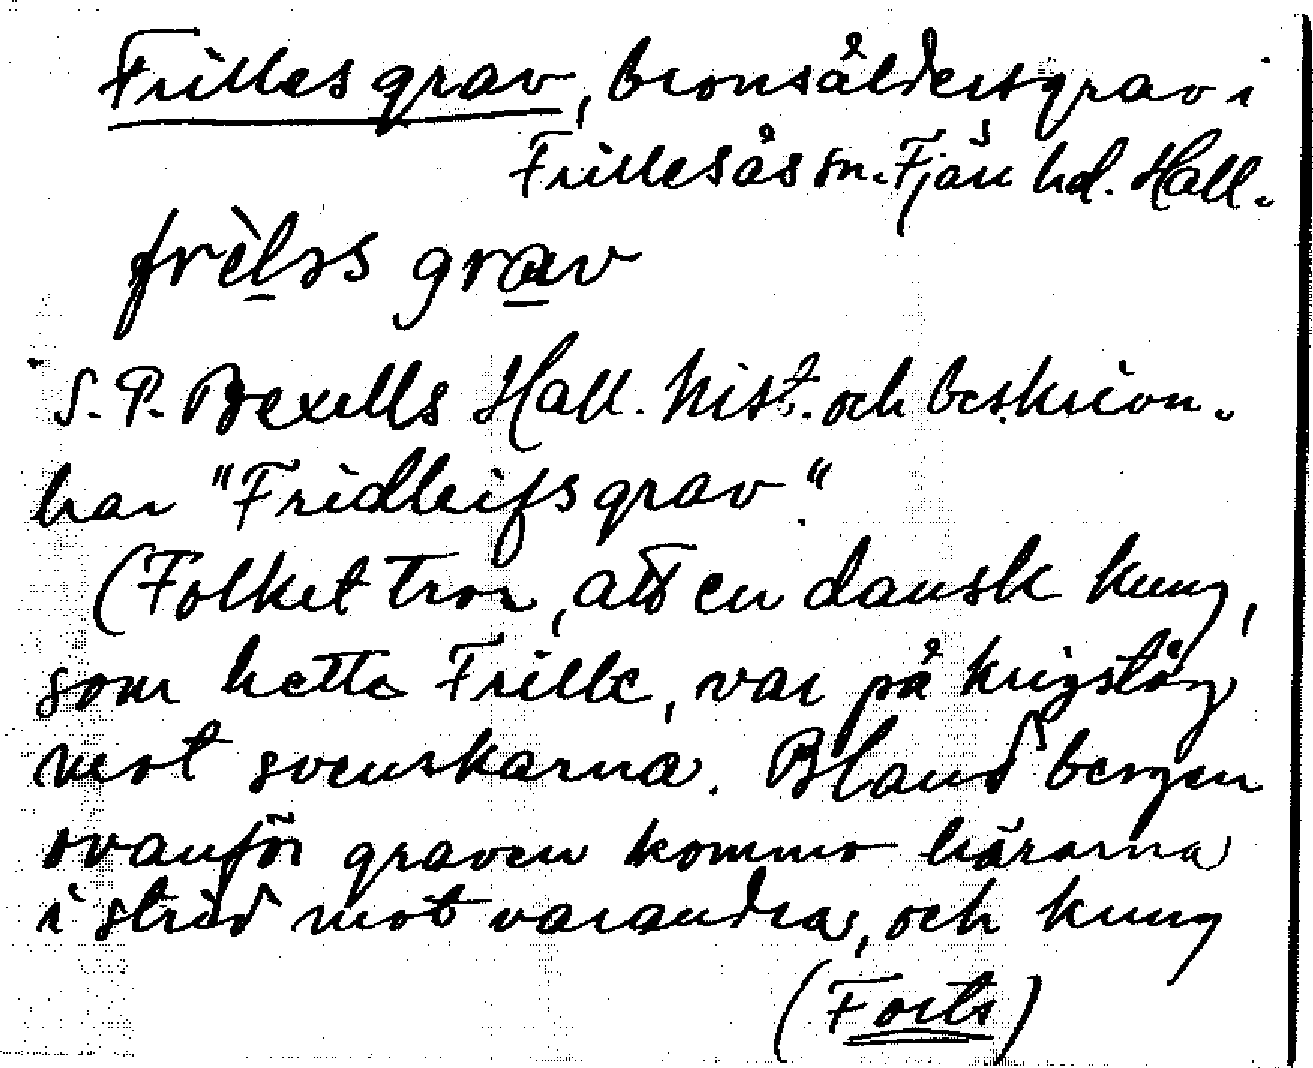 Frilles grav, bronsåldersgrav i
Frillesås sn. Fjär hd. Hall.
frèlss grav
S. P. Bexells Hall. hist. och beskrivn.
har "Fridleifs grav".
(Folket tror, att en dansk kung,
som hette Frille, var på krigståg
mot svenskarna. Bland bergen
ovanför graven kommo härarna
i strid mot varandra, och kung
(Forts)